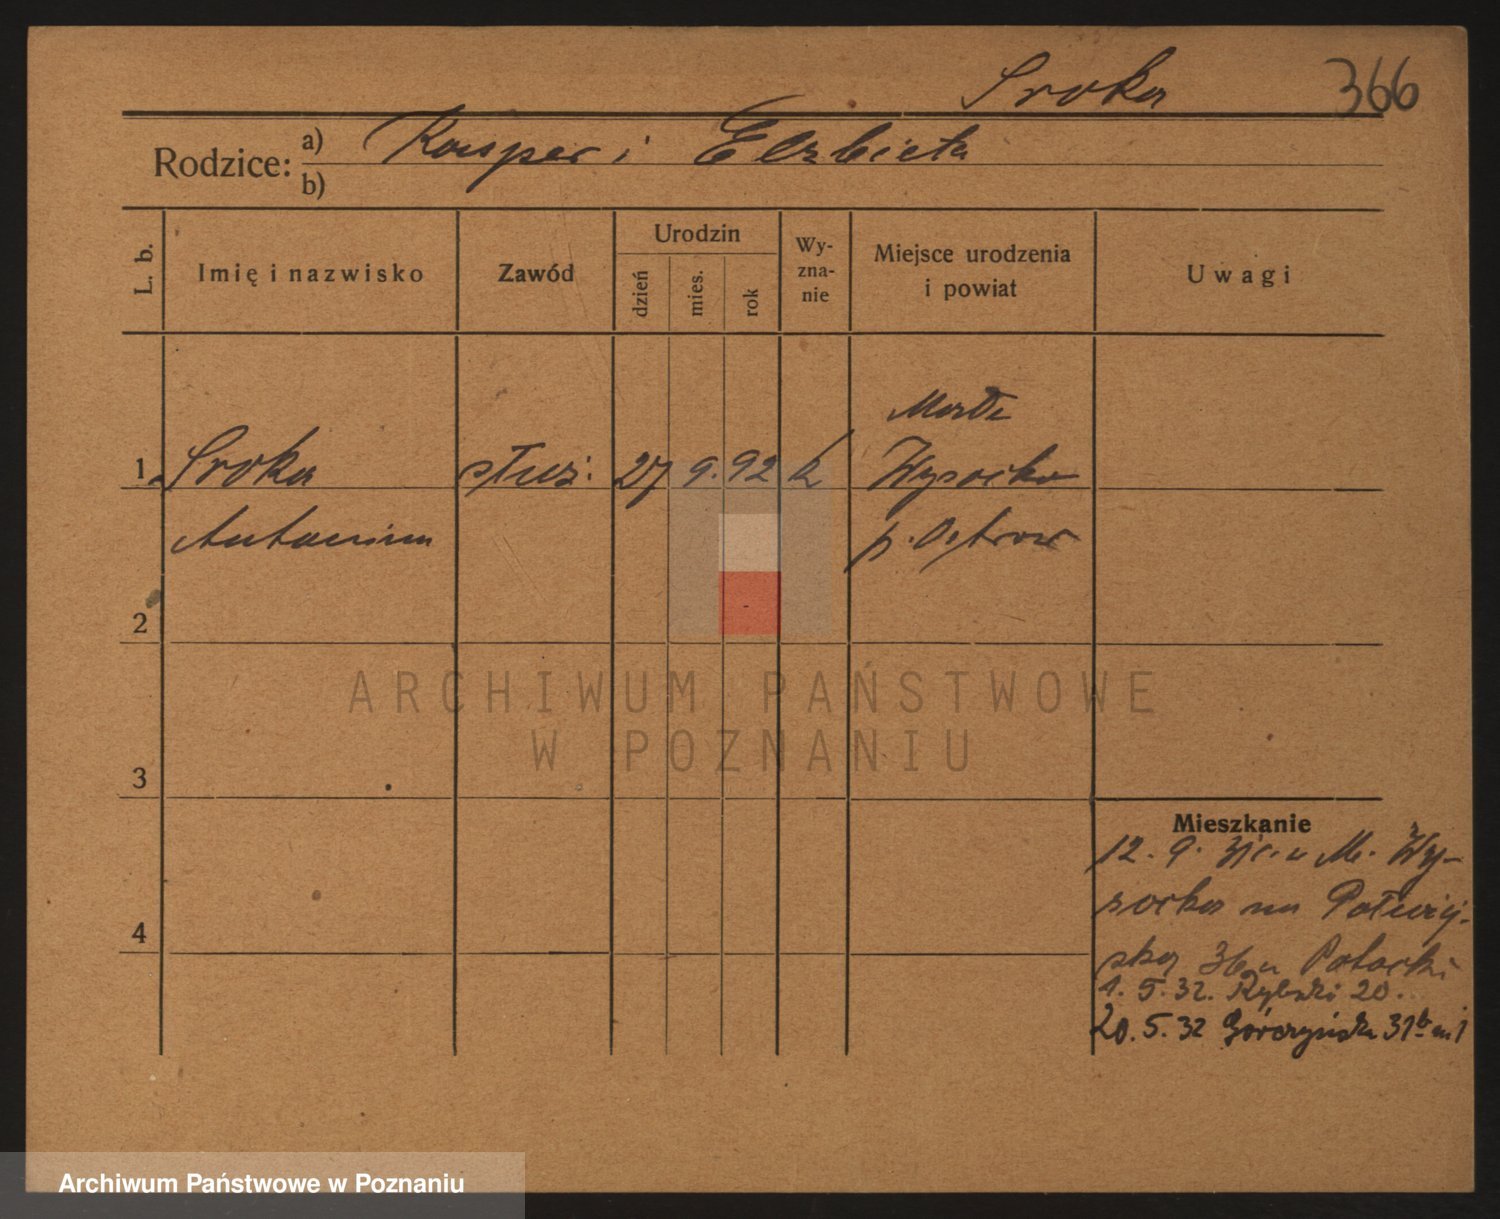 Sroka 366
Rodzice: a) Kasper i Elzbieta
b)
L. b.
Imię i nazwisko
Zawód
Urodzin
dzień
mies.
rok
Wy-
zna-
nie
Miejsce urodzenia
i powiat
Uwagi
1 Sroka służ. 27 9. 92 k Wysocko
Antonina p. Ostrow
2
ARCHIWUM PAŃSTWOWE
W POZNANIU
3
4
Mieszkanie
12. 9. M. Wy-
socka na
36 u Potocki
1. 5. 32. Rybaki 20.
20. 5. 32 Górczyńska 31b m 1
Archiwum Państwowe w Poznaniu